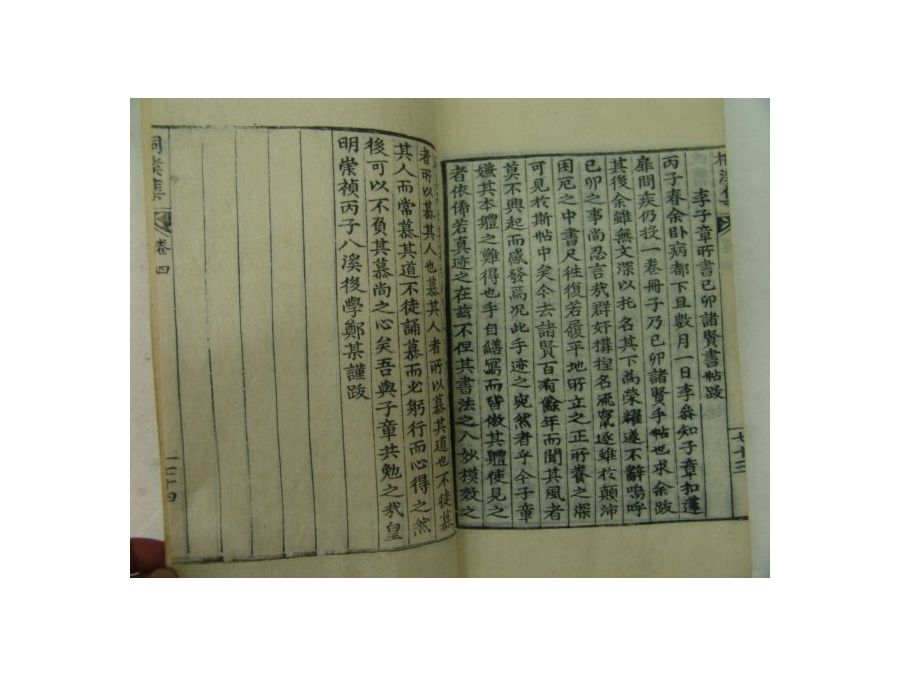 李子章所書己卯諸賢書帖跋
丙子春余卧病都下且數月一日李僉知子章扣蓬
扉問疾仍投一卷冊子乃己卯諸賢手帖也求余跋
其後余雖無文深以托名其下為榮耀遂不辭嗚呼
己卯之事尚忍言哉群奸搆捏名流竄逐雖於顛沛
困厄之中書尺徃復若履平地所立之正所養之深
可見於斯帖中矣今去諸賢百有餘年而聞其風者
莫不興起而感發焉况此手迹之宛然者乎今子章
嫌其本軆之難得也手自繕寫而皆倣其軆使見之
者依俙若真迹之在玆不但其書法之入妙模效之
者所以慕其人也慕其人者所以慕其道也不徒慕
其人而常慕其道不徒誦慕而必躬行而心得之然
後可以不負其慕尚之心矣吾與子章共勉之哉皇
明崇禎丙子八溪後學鄭某謹跋
卷四
七十四